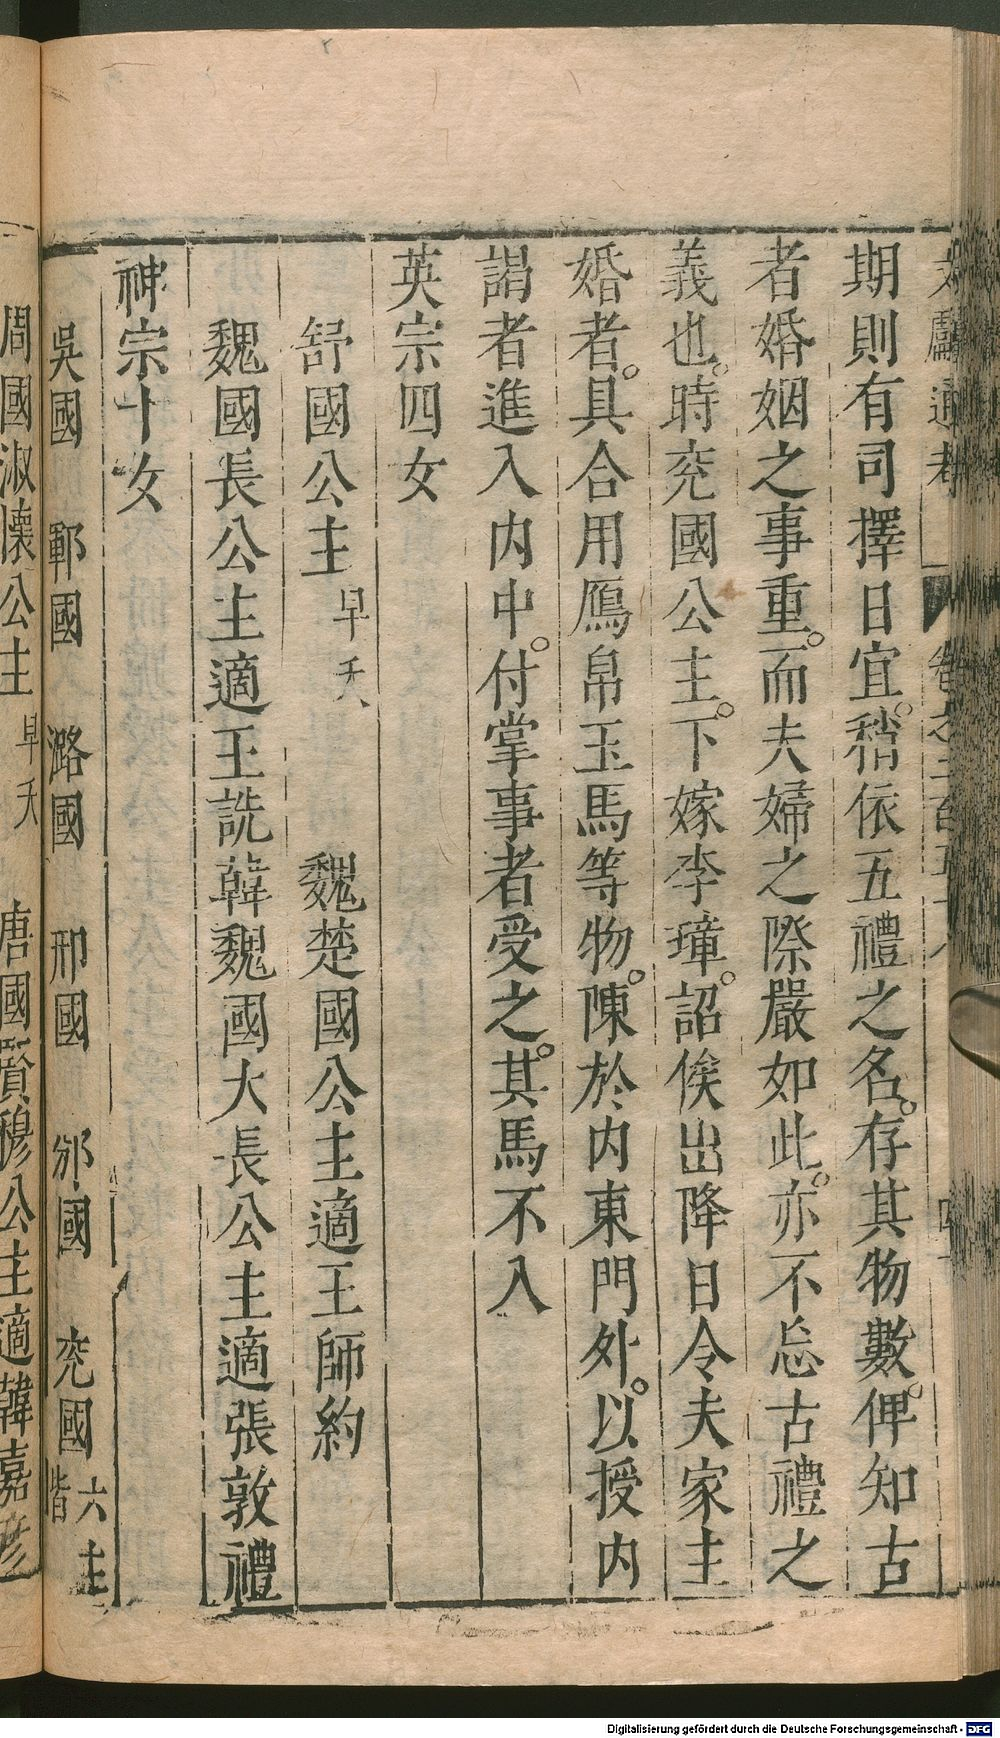 文獻通考 卷之二百五十八
期則有司擇日宜。稍依五禮之名。存其物數。俾知古
者婚姻之事重。而夫婦之際嚴如此。亦不忘古禮之
義也。時兖國公主。下嫁李瑋。詔俟出降日令夫家主
婚者。具合用鴈帛玉馬等物。陳於内東門外。以授内
謁者進入内中。付掌事者受之。其馬不入
英宗四女
舒國公主早夭 魏楚國公主適王師約
魏國長公主適王詵韓魏國大長公主適張敦禮
神宗十女
吳國 鄆國 潞國 邢國 邠國 兖國六主皆
周國淑懷公主早夭 唐國賢穆公主適韓嘉彦
Digitalisierung gefördert durch die Deutsche Forschungsgemeinschaft - DFG